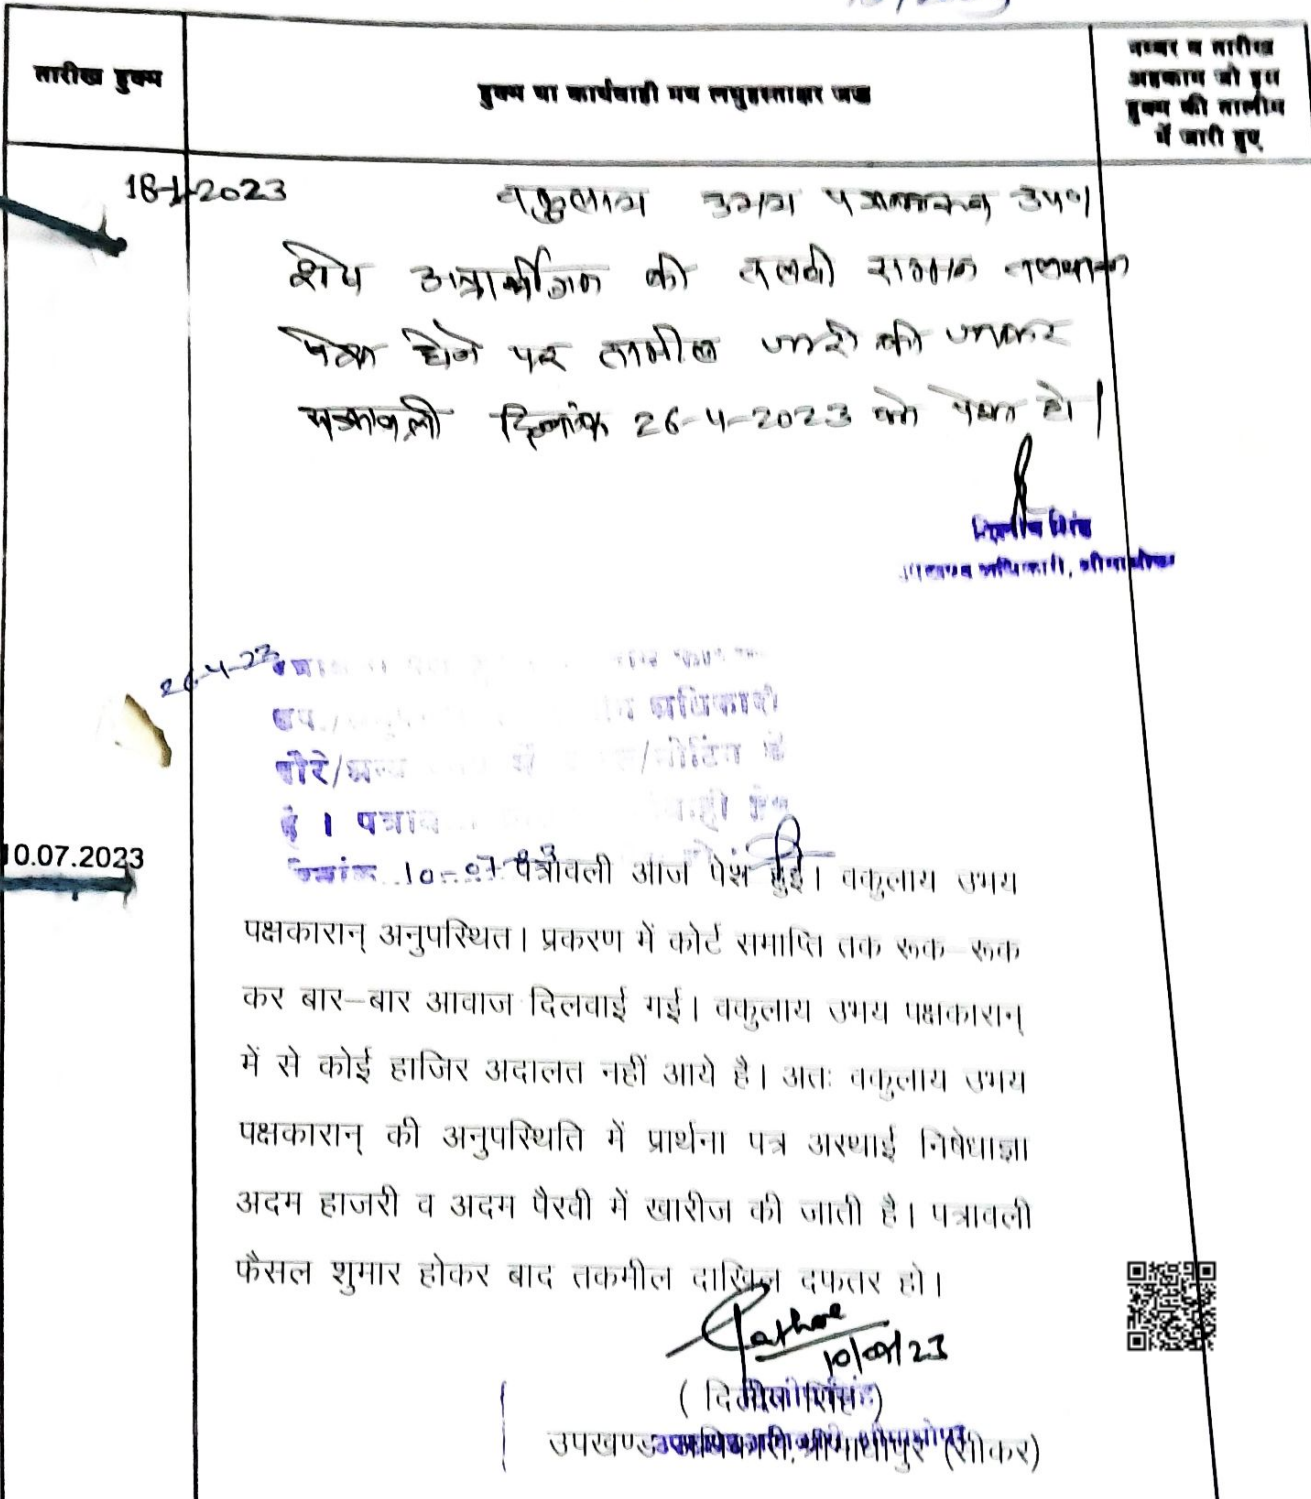 तारीख हुक्म
हुक्म या कार्यवाही मय लघुहस्ताक्षर जज
नम्बर व तारीख
अहकाम जो इस
हुक्म की तालीम
में जारी हुए
18-1-2023
वकुलाय उभय पक्षकारान उप०
शेष अप्रार्थीगण की तलबी तलवाना
पेश होने पर तामील जारी की जाकर
पत्रावली दिनांक 26-4-2023 को पेश हो।
दिलीप सिंह
उपखण्ड अधिकारी, श्रीमाधोपुर
26-4-23
अधिकारी
दौरे/अन्य में /मीटिंग में
है। पत्राव
दिनांक 10-07-23
10.07.2023
पत्रावली आज पेश हुई। वकुलाय उभय
पक्षकारान् अनुपस्थित। प्रकरण में कोर्ट समाप्ति तक रूक–रूक
कर बार–बार आवाज दिलवाई गई। वकुलाय उभय पक्षकारान्
में से कोई हाजिर अदालत नहीं आये है। अतः वकुलाय उभय
पक्षकारान् की अनुपस्थिति में प्रार्थना पत्र अस्थाई निषेधाज्ञा
अदम हाजरी व अदम पैरवी में खारीज की जाती है। पत्रावली
फैसल शुमार होकर बाद तकमील दाखिल दफतर हो।
10/07/23
( दिलीप सिंह )
उपखण्ड अधिकारी, श्रीमाधोपुर (सीकर)